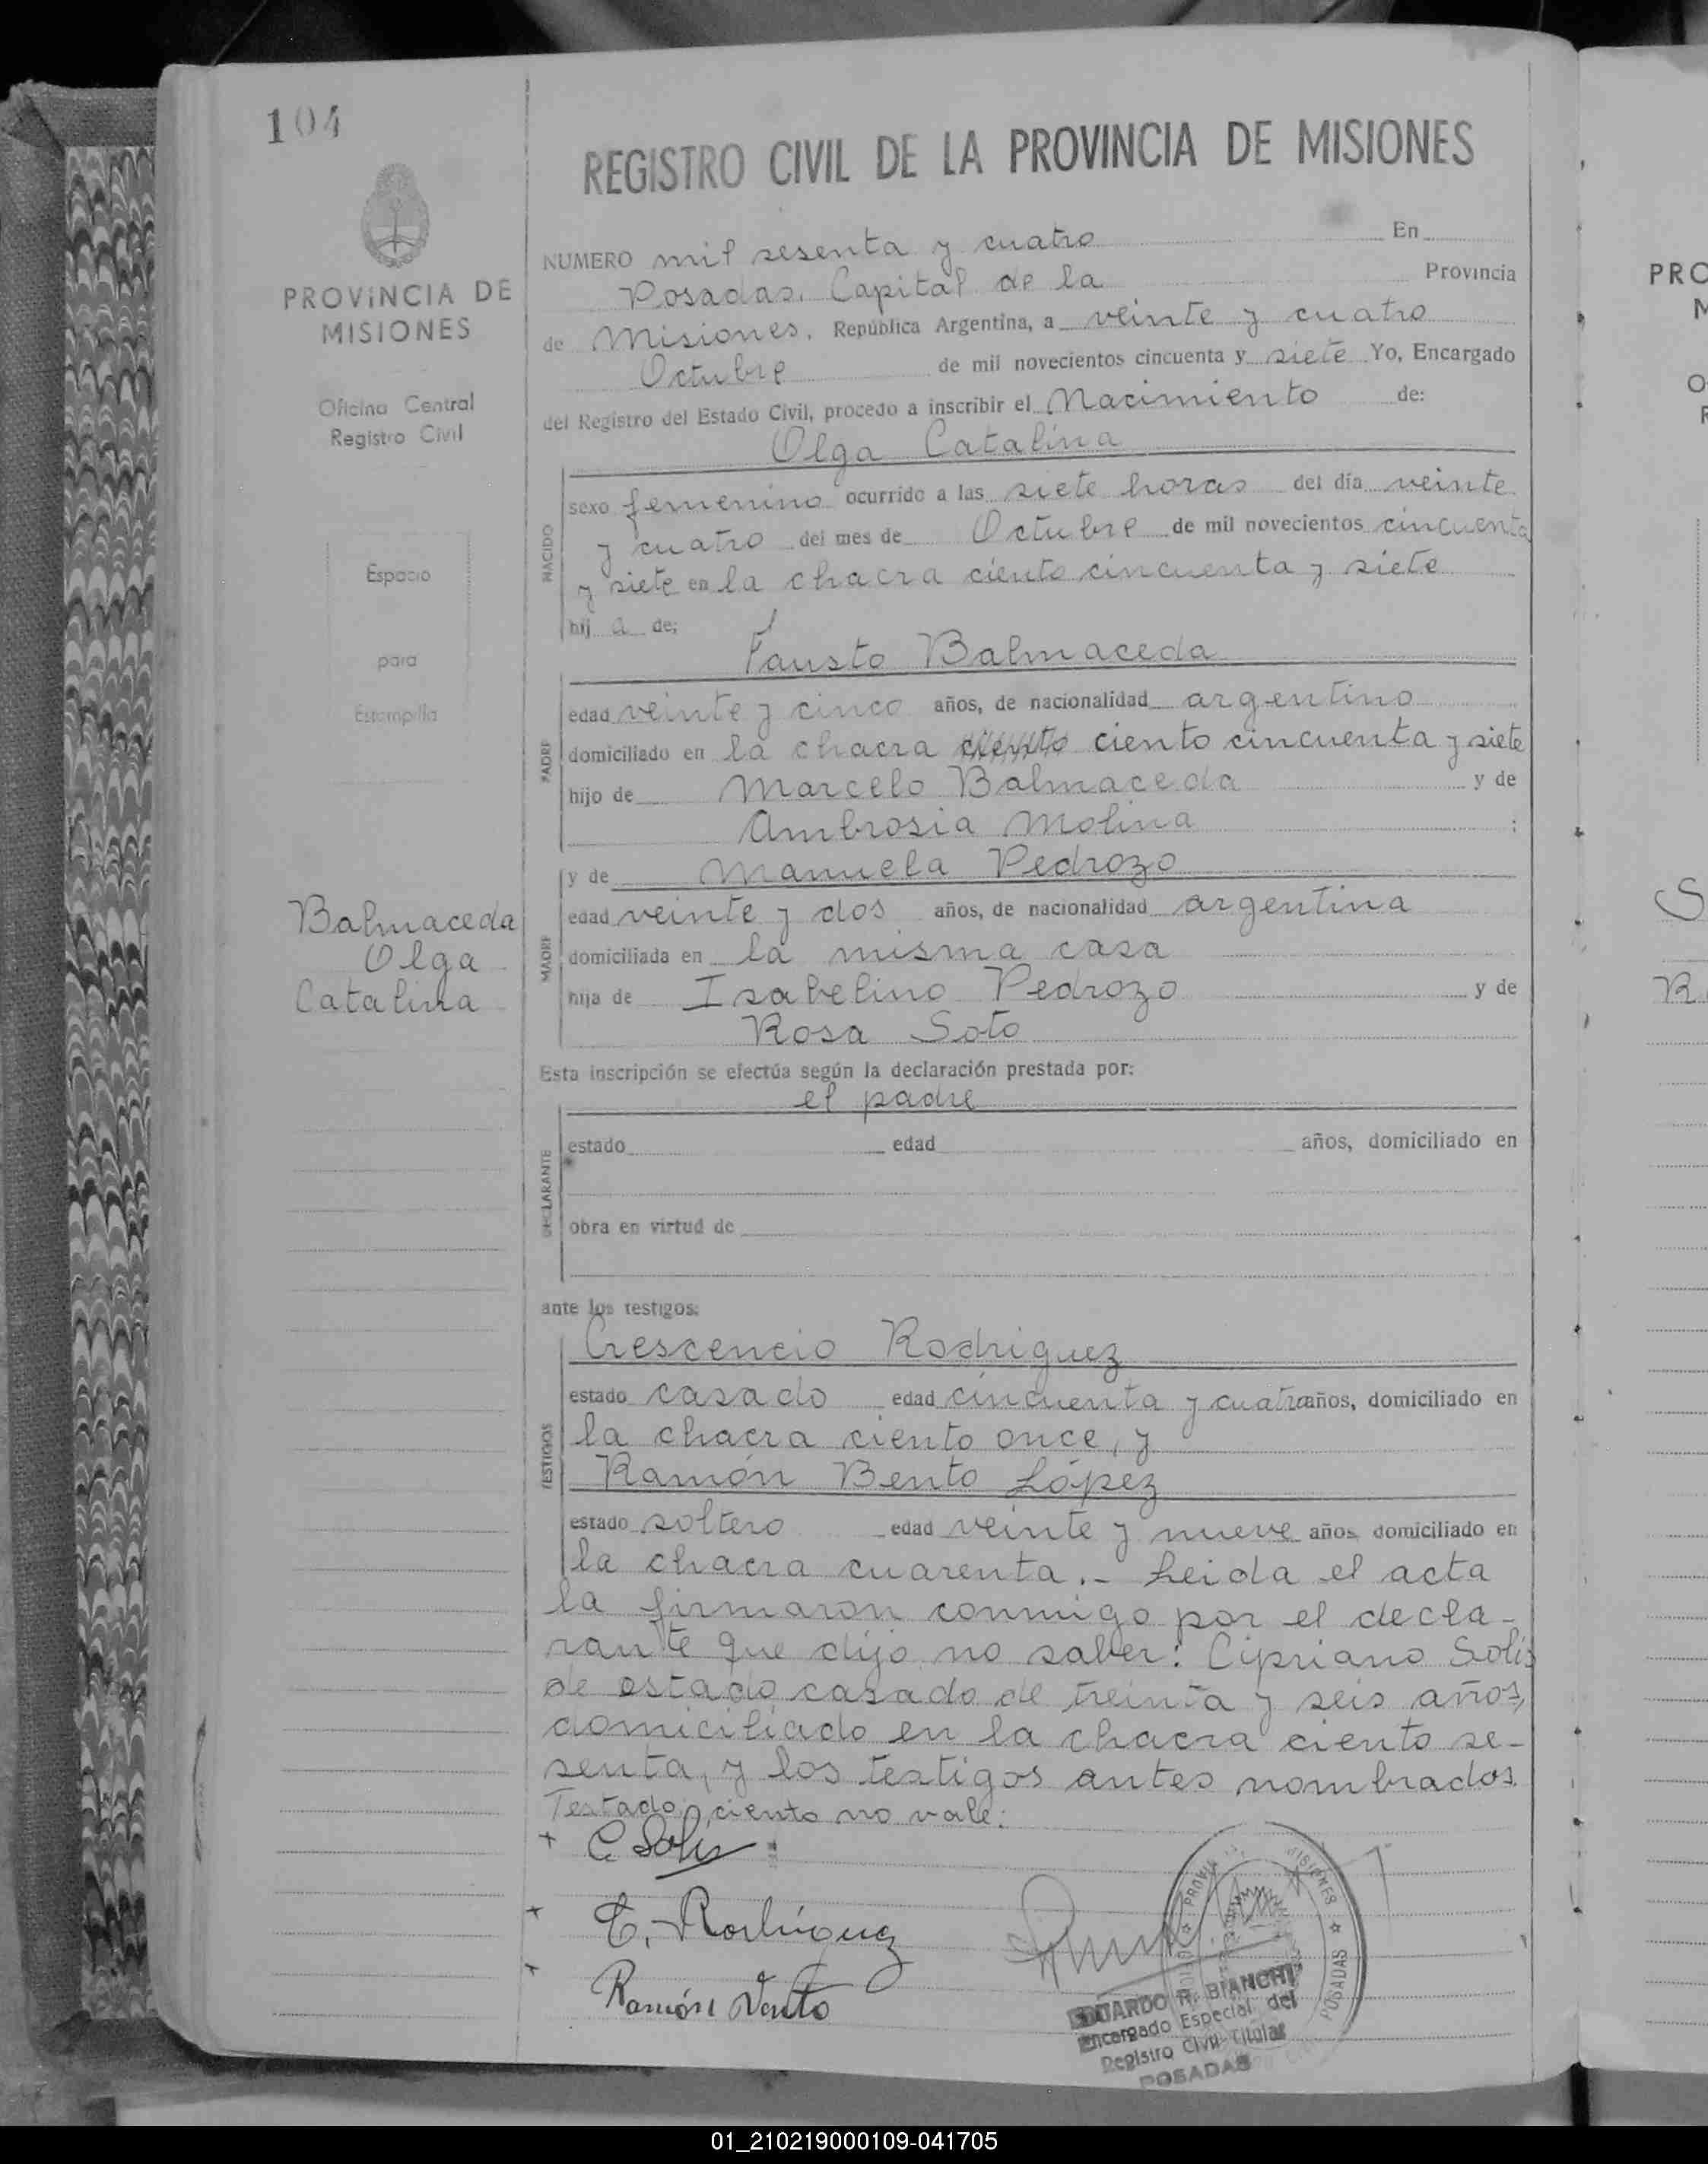 104
PROVINCIA DE
MISIONES
Oficina Central
Registro Civil
Espacio
para
Estampilla
Balmaceda
Olga
Catalina
REGISTRO CIVIL DE LA PROVINCIA DE MISIONES
NUMERO mil sesenta y cuatro En
Posadas, Capital de la Provincia
de Misiones, República Argentina, a veinte y cuatro
Octubre de mil novecientos cincuenta y siete Yo, Encargado
del Registro del Estado Civil, procedo a inscribir el Nacimiento de:
Olga Catalina
NACIDO
sexo femenino ocurrido a las siete horas del día veinte
y cuatro del mes de Octubre de mil novecientos cincuenta
y siete en la chacra ciento cincuenta y siete
hij a de;
Fausto Balmaceda
PADRE
edad veinte y cinco años, de nacionalidad argentino
domiciliado en la chacra ciento ciento cincuenta y siete
hijo de Marcelo Balmaceda y de
Ambrosia Molina :
y de Manuela Pedrozo
MADRE
edad veinte y dos años, de nacionalidad argentina
domiciliada en la misma casa
hija de Isabelino Pedrozo y de
Rosa Soto
Esta inscripción se efectúa según la declaración prestada por:
el padre
DECLARANTE
estado edad años, domiciliado en
obra en virtud de
ante los testigos:
Crescencio Rodriguez
TESTIGOS
estado casado edad cincuenta y cuatro años, domiciliado en
la chacra ciento once, y
Ramón Bento López
estado soltero edad veinte y nueve años domiciliado en
la chacra cuarenta.- Leida el acta
la firmaron conmigo por el decla-
rante que dijo no saber: Cipriano Solis
de estado casado de treinta y seis años,
domiciliado en la chacra ciento se-
senta, y los testigos antes nombrados.
Testado: ciento no vale:
C. Solis
C. Rodriguez
Ramón Vento
PROVINCIA MISIONES
POSADAS
EDUARDO R. BIANCHI
Encargado Especial del
Registro Civil Titular
POSADAS
PRO
M
O
R
S
R
01_210219000109-041705